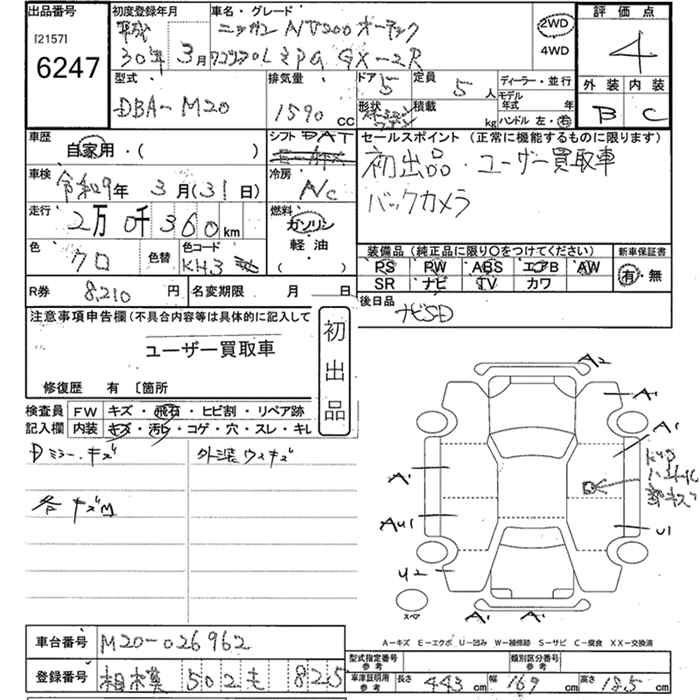 出品番号 初度登録年月 車名・グレード 評価点
[2157] 平成 ニッサン NV200 2WD
6247 30年 3月 GX-2R 4WD 4
型式 排気量 ドア 定員 ディーラー・並行 外装 内装
DBA-M20 1590 cc 5 5人 モデル年式 年 B C
形状 積載 kg ハンドル 左・右
車歴 シフト セールスポイント (正常に機能するものに限ります)
自家用・( ) AT
初出品・ユーザー買取車
車検 冷房
令和9年 3月(31日) AC バックカメラ
走行 燃料
2万0千360km ガソリン
軽油
( )
色 色替 色コード
クロ KH3
装備品 (純正品に限り〇をつけてください) 新車保証書
PS PW ABS エアB AW 有・無
SR ナビ TV カワ
R券 8,210円 名変期限 月 日 後日品
ナビSD
注意事項申告欄(不具合内容等は具体的に記入して
ユーザー買取車
修復歴 有 〔箇所
初出品
検査員 FW キズ・飛石・ヒビ割・リペア跡
記入欄 内装 キズ・汚レ・コゲ・穴・スレ・キレ
Dミラーキズ 外装ウィキズ
各キズM
A2
A1
A1
A1
AU1
U1
U2
A1 A1
スペア
A-キズ E-エクボ U-凹み W-補修跡 S-サビ C-腐食 XX-交換済
車台番号 M20-026962
型式指定番号 参考 類別区分番号 参考
登録番号 相模 502 も 825
車検証用 参考 長さ 443 cm 幅 169 cm 高さ 185 cm